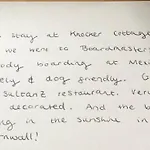 stay at Knocker Cottage
we were to Boardmasters
ody boarding at Me
ely & dog friendly. G
Sultanz restaurant. Ver
decorated. And the b
g in the sunshine in
nwall!